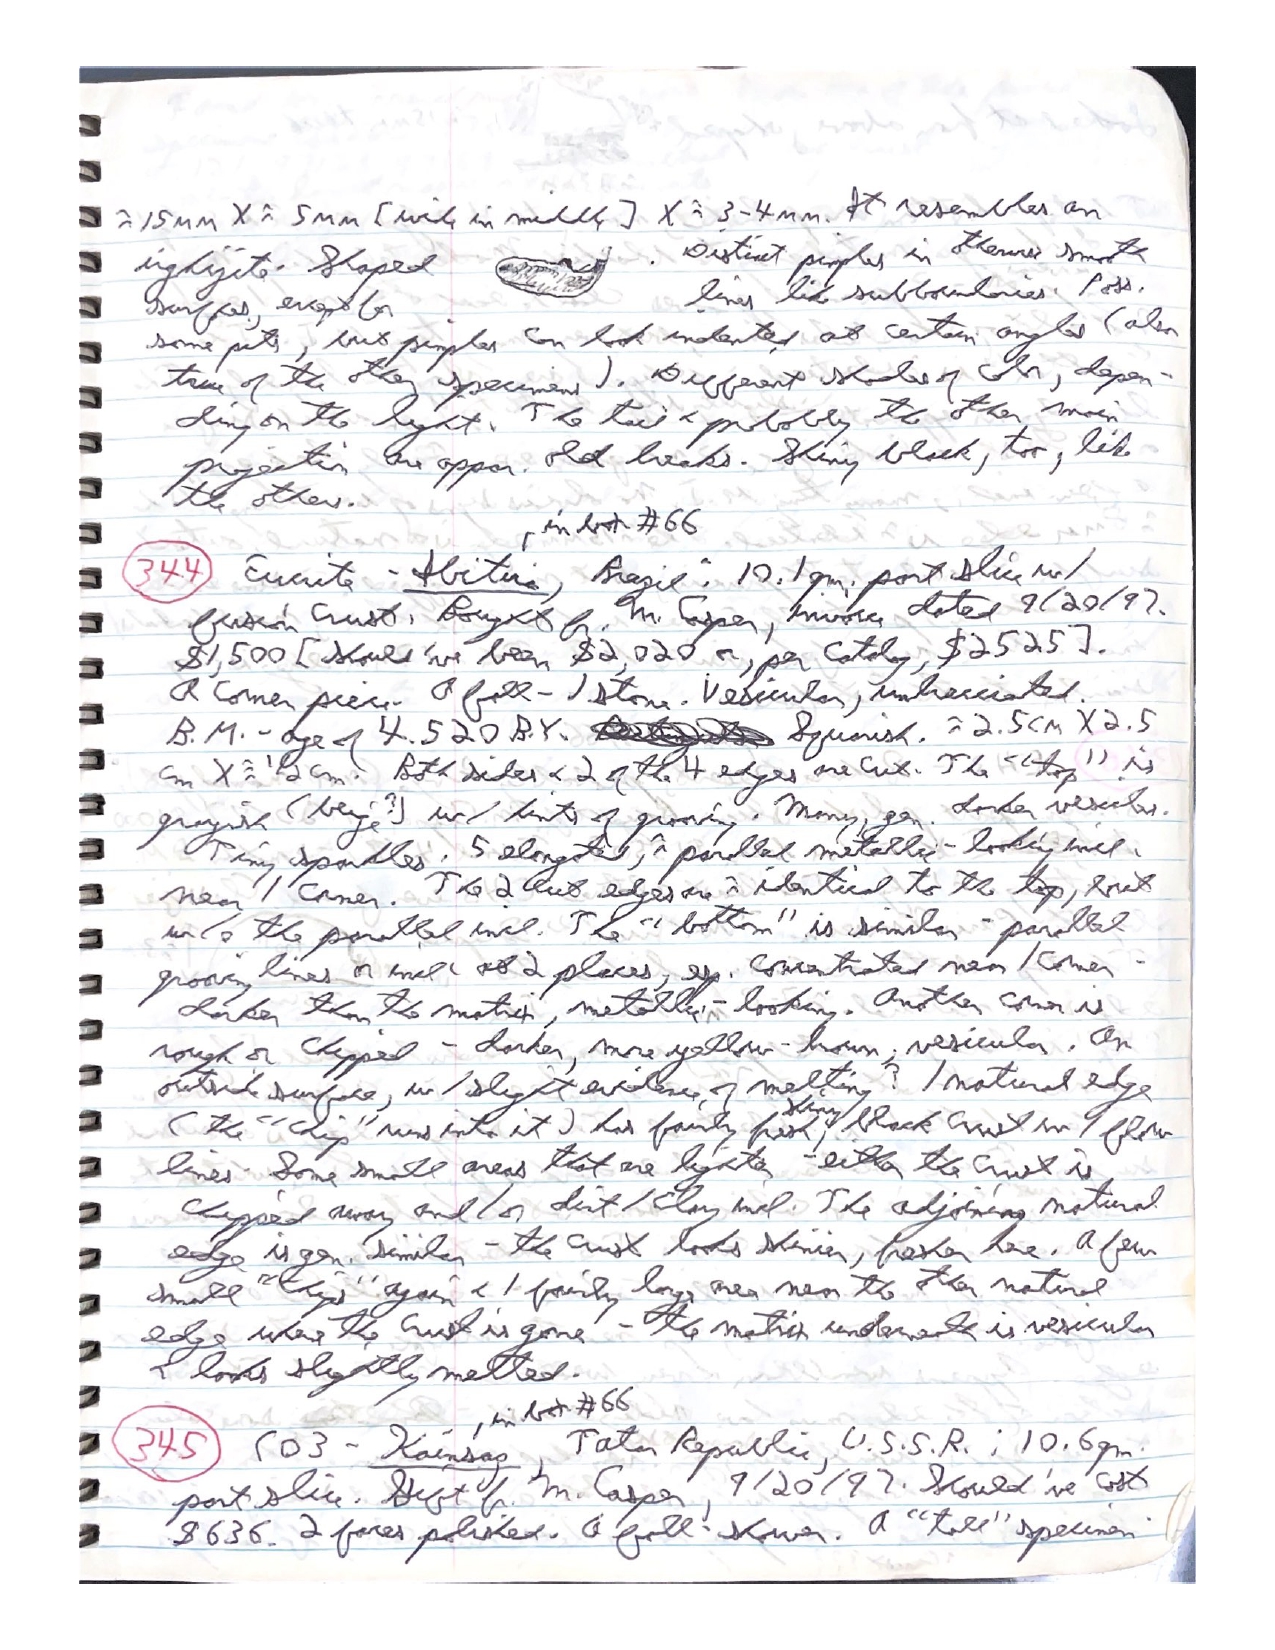 ≈15mm X ≈ 5mm [wide in middle] X ≈ 3-4mm. It resembles an
irghizite. Shaped . Distinct pimples in otherwise smooth
surfaces, except for lines like subboundaries. Poss.
some pits, but pimples can look indented at certain angles (also
true of the other specimens). Different shades of color, depen-
ding on the light. The tail & probably the other main
projection are appar. old breaks. Shiny black, too, like
the others.
, in box #66
344 Eucrite - Ibitira, Brazil: 10.1gm. part slice w/
fusion crust. Bought fr. M. Casper, invoice dated 9/20/97.
$1,500 [should've been $2,020 or, per catalog, $2525].
A corner piece. A fall - 1 stone. Vesicular, unbrecciated.
B.M. - age of 4.520 B.Y. Squarish. ≈2.5cm X 2.5
cm X ≈ 1/2cm. Both sides & 2 of the 4 edges are cut. The "top" is
grayish (beige?) w/ hints of grooving. Many, gen. darker vesicles.
Tiny sparkles. 5 elongated, ≈ parallel metallic-looking incl.
near 1 corner. The 2 cut edges are ≈ identical to the top, but
w/o the parallel incl. The "bottom" is similar - parallel
grooving lines or incl. at 2 places, esp. concentrated near 1 corner -
darker than the matrix, metallic-looking. Another corner is
rough or chipped - darker, more yellow-brown, vesicular. An
outside surface, w/ slight evidence of melting? 1 natural edge
(the "chip" runs into it) has fairly fresh, shiny black crust w/ flow
lines. Some small areas that are lighter - either the crust is
chipped away and/or dirt/clay incl. The adjoining natural
edge is gen. similar - the crust looks shinier, fresher here. A few
small "chips" again & 1 fairly large area near the other natural
edge where the crust is gone - the matrix underneath is vesicular
& looks slightly melted.
, in box #66
345 CO3 - Kainsaz, Tatar Republic, U.S.S.R.; 10.6gm.
part slice. Gift fr. M. Casper, 9/20/97. Should've cost
$636. 2 faces polished. A fall - shower. A "tall" specimen